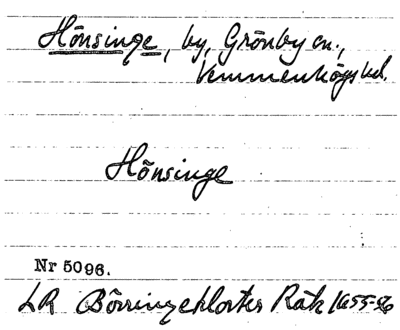 Hönsinge, by, Grönby sn.,
Vemmenhögs hd.
Hönsinge
Nr 5096.
LR Börringeklosters Räk 1655-56